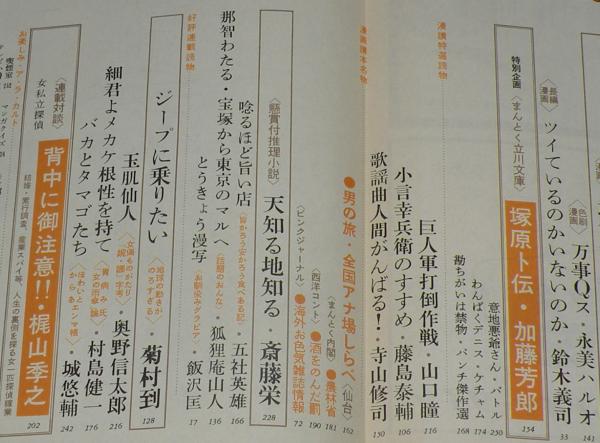 〈色刷漫画〉万事Qス・永美ハルオ 141
〈長編漫画〉ツイているのかいないのか・鈴木義司 33
特別企画〈まんとく立川文庫〉塚原卜伝・加藤芳郎 154
漫讀特選読物
意地悪爺さん・バトル 250
わんぱくデニス・ケチャム 174
勘ちがいは禁物・パンチ傑作選 168
巨人軍打倒作戦・山口瞳 116
小言幸兵衛のすすめ・藤島泰輔 106
歌謡曲人間がんばる!・寺山修司 150
漫画讀本名物
●男の旅・全国アナ場しらべ〈仙台〉 162
〈まんとく内閣〉●農林省 181
〈西洋コント〉●酒をのんだ罰 190
〈ピンクジャーナル〉●海外お色気雑誌情報 72
〈懸賞付推理小説〉天知る地知る・斎藤栄 228
唸るほど旨い店〈皆かろう安かろう食べある記〉・五社英雄 166
那智わたる・宝塚から東京のマルへ〈話題のおんな〉・狐狸庵山人 136
とうきょう漫写〈お馴染みグラビア〉・飯沢匡 17
好評連載読物
ジープに乗りたい〈地球の動きがのろすぎる〉・菊村到 128
玉肌仙人〈女湯ものがたり〉・奥野信太郎 216
細君よメカケ根性を持て・村島健一 176
バカとタマゴたち・城悠輔 242
〈連載対談〉女私立探偵 背中に御注意!!・梶山季之 202
結婚・素行調査、産業スパイ等、人生の裏側を探る女一匹探偵稼業
お楽しみ・ア・ラ・カルト
喫煙室 152
マンガクイズ